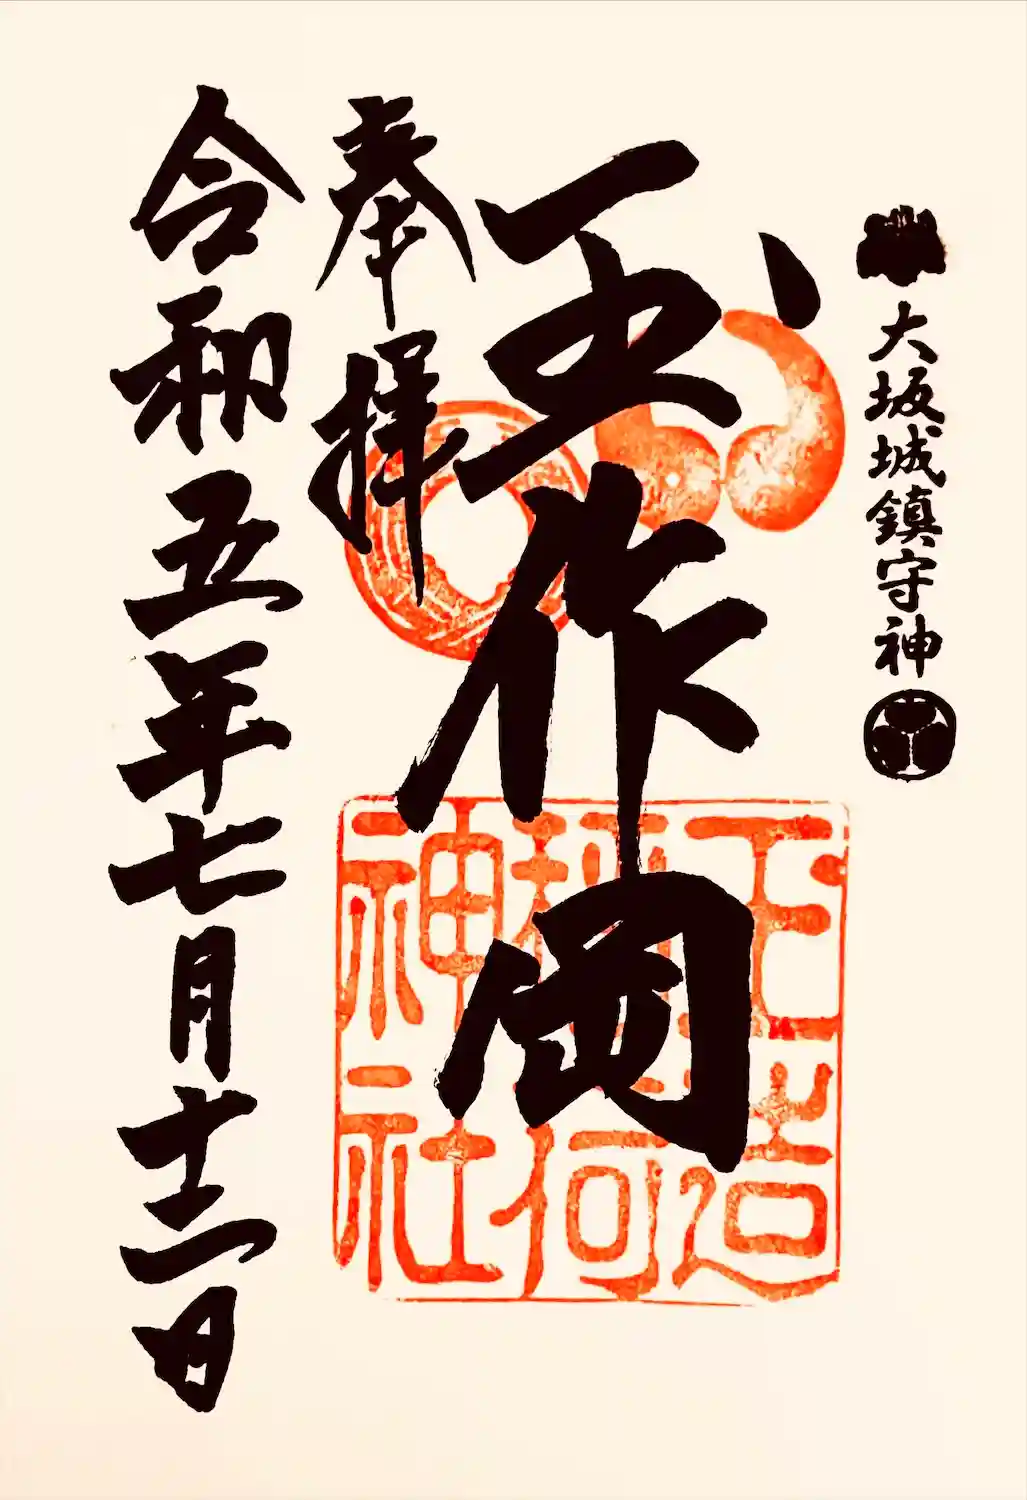 大坂城鎮守神
玉作岡
奉拝
令和五年七月十二日
玉造
稲荷
神社